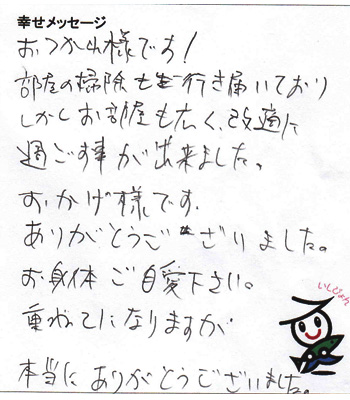 幸せメッセージ
おつかれ様です!
部屋の掃除も行き届いており
しかしお部屋も広く、改適に
過ごす事が出来ました。
おかげ様です。
ありがとうございました。
お身体ご自愛下さい。
重ねてになりますが
本当にありがとうございました。
いしぴょん